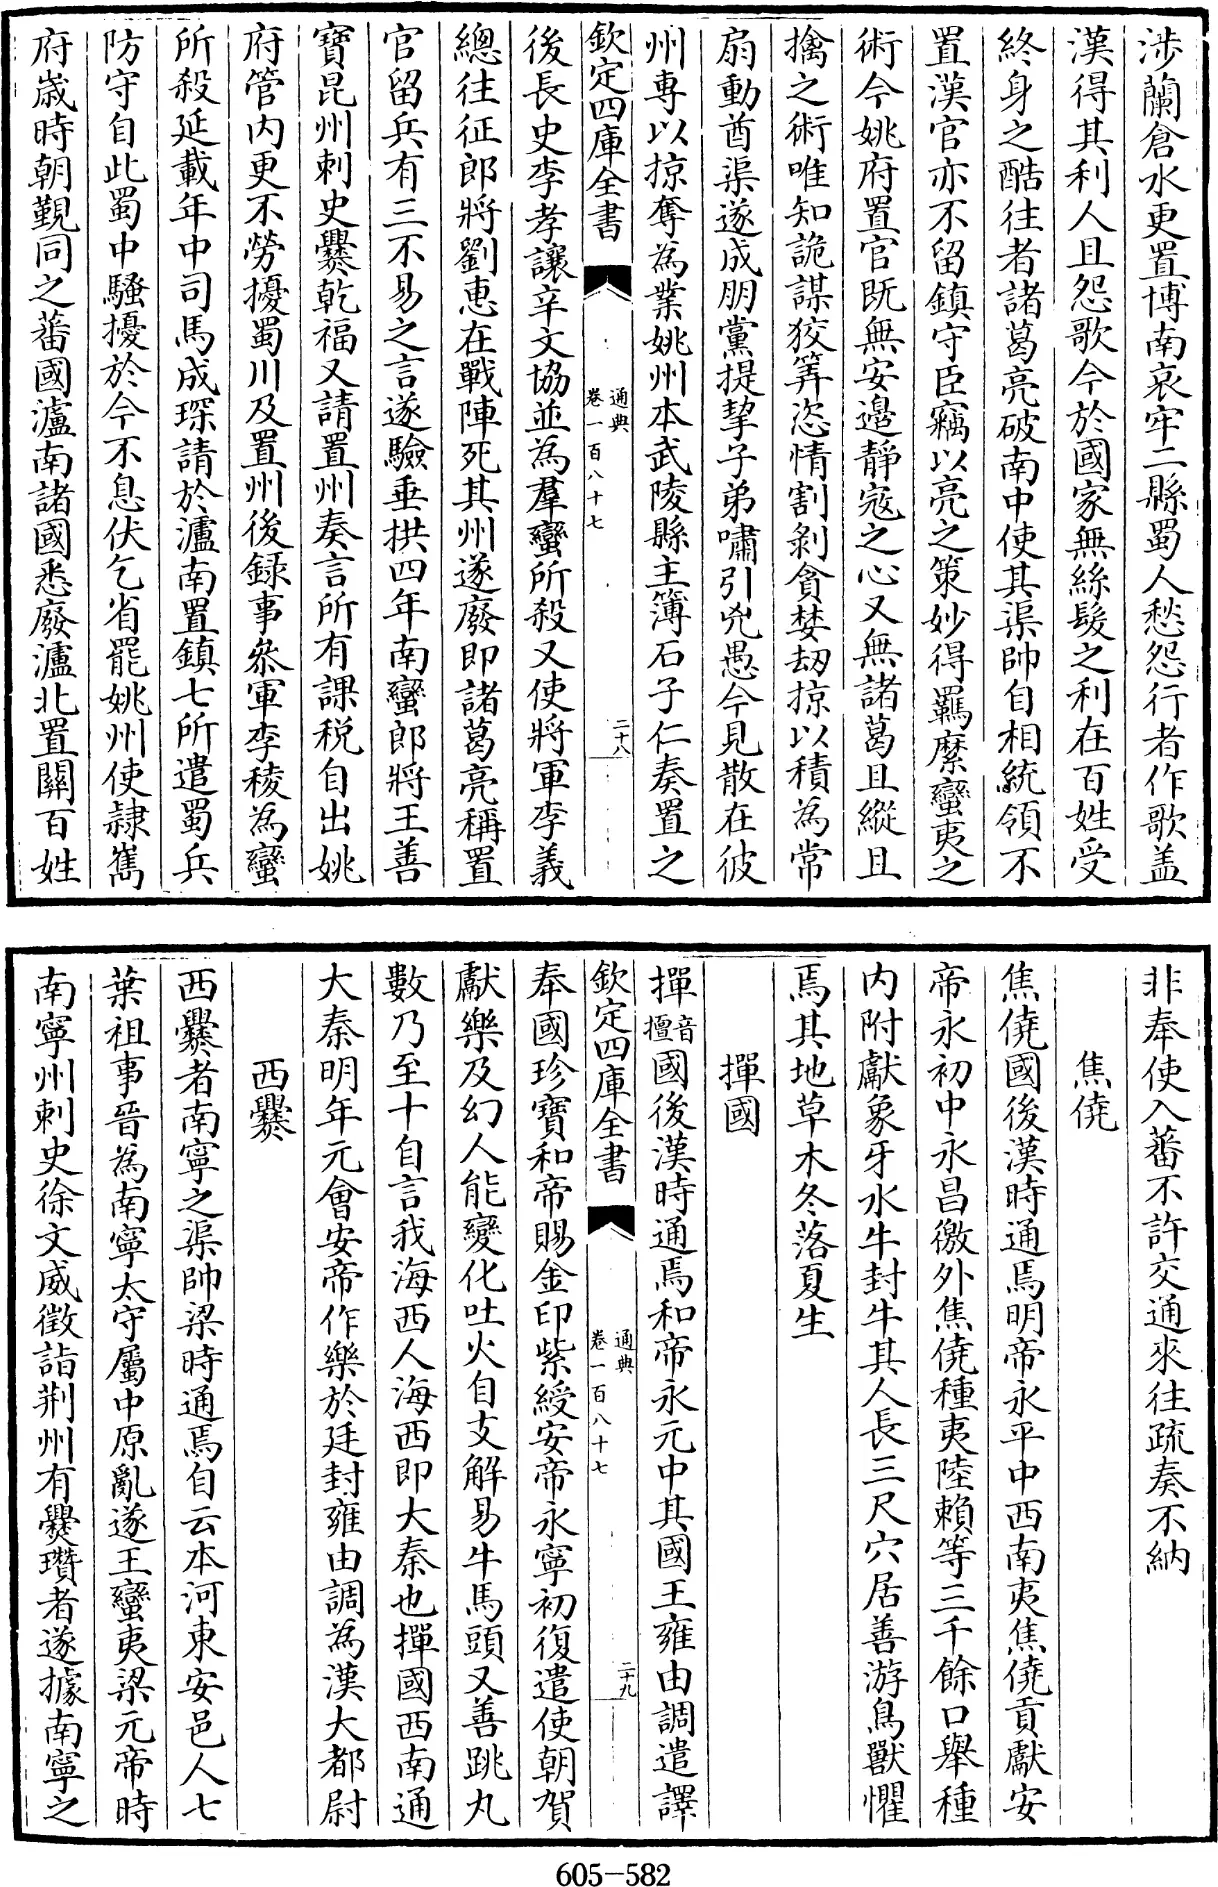 涉蘭倉水更置博南哀牢二縣蜀人愁怨行者作歌盖
漢得其利人且怨歌今於國家無絲髮之利在百姓受
終身之酷往者諸葛亮破南中使其渠帥自相統領不
置漢官亦不留鎮守臣竊以亮之策妙得羈縻蠻夷之
術今姚府置官既無安邉靜寇之心又無諸葛且縱且
擒之術唯知詭謀狡筭恣情割剝貪婪刼掠以積為常
扇動酋渠遂成朋黨提挈子弟嘯引兇愚今見散在彼
州專以掠奪為業姚州本武陵縣主簿石子仁奏置之
欽定四庫全書
通典
卷一百八十七
二十八
後長史李孝讓辛文協並為羣蠻所殺又使將軍李義
總往征郎將劉惠在戰陣死其州遂廢即諸葛亮稱置
官留兵有三不易之言遂驗垂拱四年南蠻郎將王善
寶昆州刺史爨乾福又請置州奏言所有課税自出姚
府管内更不勞擾蜀川及置州後録事叅軍李稜為蠻
所殺延載年中司馬成琛請於瀘南置鎮七所遣蜀兵
防守自此蜀中騷擾於今不息伏乞省罷姚州使隷嶲
府歲時朝覲同之蕃國瀘南諸國悉廢瀘北置關百姓
非奉使入蕃不許交通來往疏奏不納
焦僥
焦僥國後漢時通焉明帝永平中西南夷焦僥貢獻安
帝永初中永昌徼外焦僥種夷陸賴等三千餘口舉種
内附獻象牙水牛封牛其人長三尺穴居善游鳥獸懼
焉其地草木冬落夏生
撣國
撣音擅國後漢時通焉和帝永元中其國王雍由調遣譯
欽定四庫全書
通典
卷一百八十七
二十九
奉國珍寶和帝賜金印紫綬安帝永寧初復遣使朝賀
獻樂及幻人能變化吐火自支解易牛馬頭又善跳丸
數乃至十自言我海西人海西即大秦也撣國西南通
大秦明年元會安帝作樂於廷封雍由調為漢大都尉
西爨
西爨者南寧之渠帥梁時通焉自云本河東安邑人七
葉祖事晉為南寧太守屬中原亂遂王蠻夷梁元帝時
南寧州刺史徐文威徵詣荆州有爨瓚者遂據南寧之
605-582